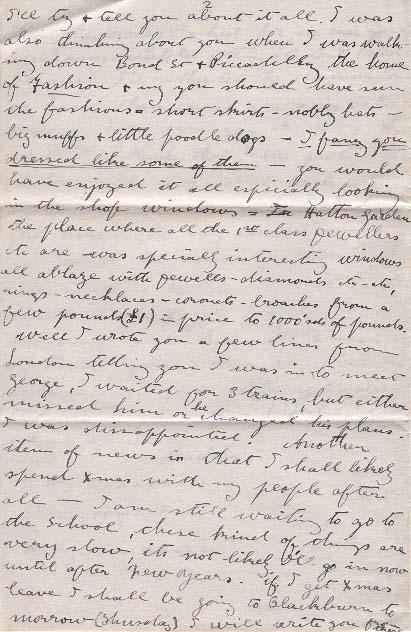 2
I'll try & tell you about it all. I was
also thinking about you when I was walk-
ing down Bond St & Piccadilly the home
of Fashion & my you should have seen
the fashions = short skirts - nobby hats -
big muffs & little poodle dogs - I fancy you
dressed like some of them - you would
have enjoyed it all especially looking
in the shop windows = In Hatton Garden
the place where all the 1st class Jewellers
etc are - was specially interesting windows
all ablaze with jewells - diamonds etc - etc,
rings - necklaces - coronets - broaches from a
few pounds (£1) in price to 1000'sds of pounds.
Well I wrote you a few lines from
London telling you I was in to meet
George, I waited for 3 trains, but either
missed him or he changed his plans.
I was dissappointed. Another
item of news is that I shall likely
spend Xmas with my people after
all - I am still waiting to go to
the School, these kind of things are
very slow, its not likely I'll go in now
until after New Years. If I get Xmas
leave I shall be going to Blackburn to
morrow (Thursday) I will write you